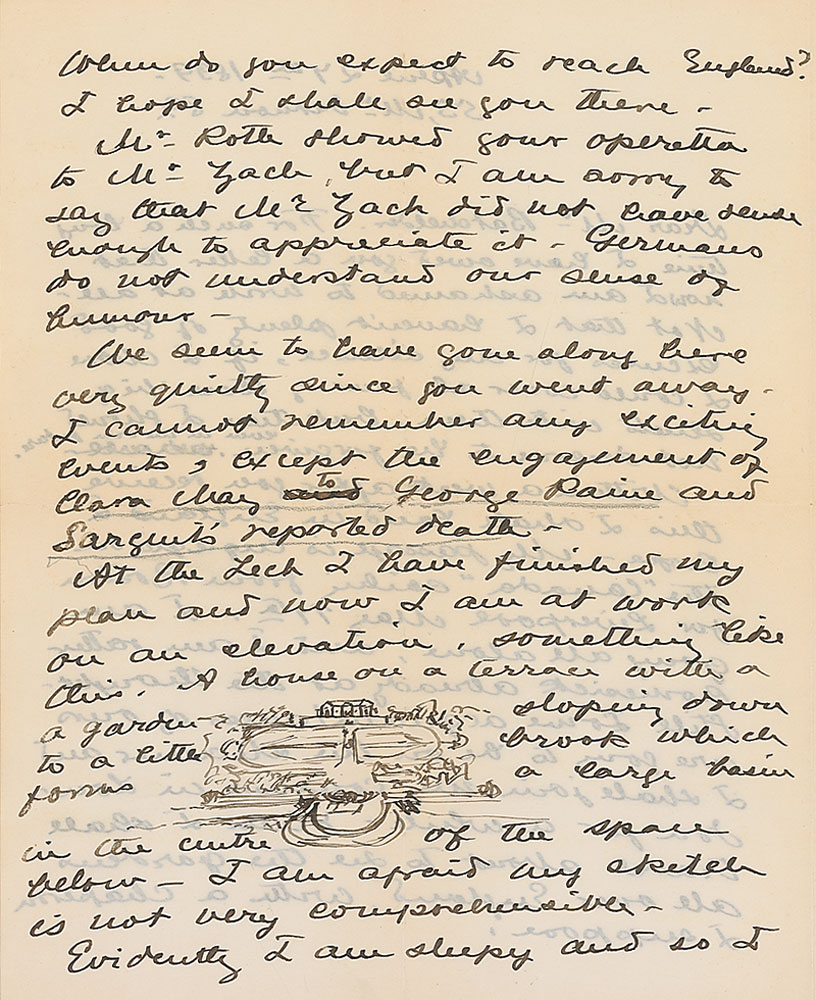 When do you expect to reach England?
I hope I shall see you there -
Mr= Roth showed your operetta
to Mr= Zach, but I am sorry to
say that Mr= Zach did not have sense
enough to appreciate it - Germans
do not understand our sense of
humour -
We seem to have gone along here
very quietly since you went away -
I cannot remember any exciting
events, except the engagement of
Clara May to George Paine and
Sargent's reported death -
At the Tech I have finished my
plan and now I am at work
on an elevation, something like
this. A house on a terrace with a
a garden sloping down
to a little brook which
forms a large basin
in the centre of the space
below - I am afraid my sketch
is not very comprehensible -
Evidently I am sleepy and so I